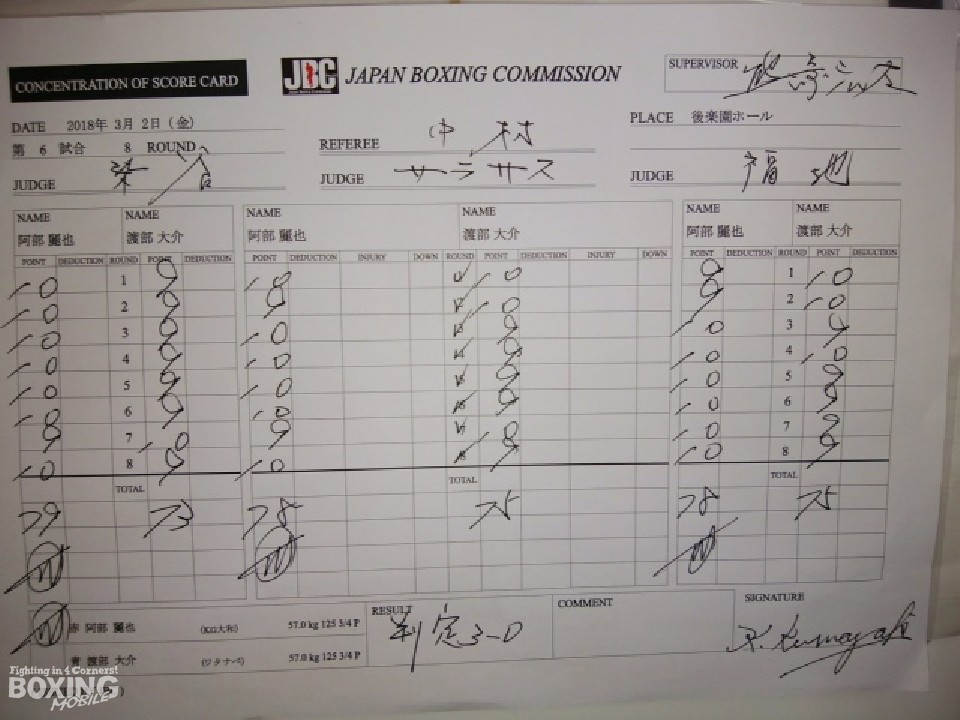 CONCENTRATION OF SCORE CARD
JBC JAPAN BOXING COMMISSION
SUPERVISOR
DATE 2018年 3月 2日(金)
PLACE 後楽園ホール
第 6 試合 8 ROUND
REFEREE 中村
JUDGE JUDGE サラサス JUDGE 福地
NAME NAME NAME NAME NAME NAME
阿部 麗也 渡部 大介 阿部 麗也 渡部 大介 阿部 麗也 渡部 大介
POINT DEDUCTION ROUND POINT DEDUCTION POINT DEDUCTION INJURY DOWN ROUND POINT DEDUCTION INJURY DOWN POINT DEDUCTION ROUND POINT DEDUCTION
10 1 9 10 9 1 10
10 2 9 9 9 2 10
10 3 9 10 9 10 3 9
10 4 9 10 9 10 4 10
10 5 9 10 9 10 5 9
10 6 9 10 9 10 6 9
9 7 10 9 10 10 7 9
10 8 9 10 9 10 8 9
TOTAL TOTAL TOTAL
79 73 78 75 78 75
赤 阿部 麗也 (KG大和) 57.0 kg 125 3/4 P
青 渡部 大介 (ワタナベ) 57.0 kg 125 3/4 P
RESULT 判定 3-0
COMMENT
SIGNATURE
Fighting in 4 Corners!
BOXING
MOBILE